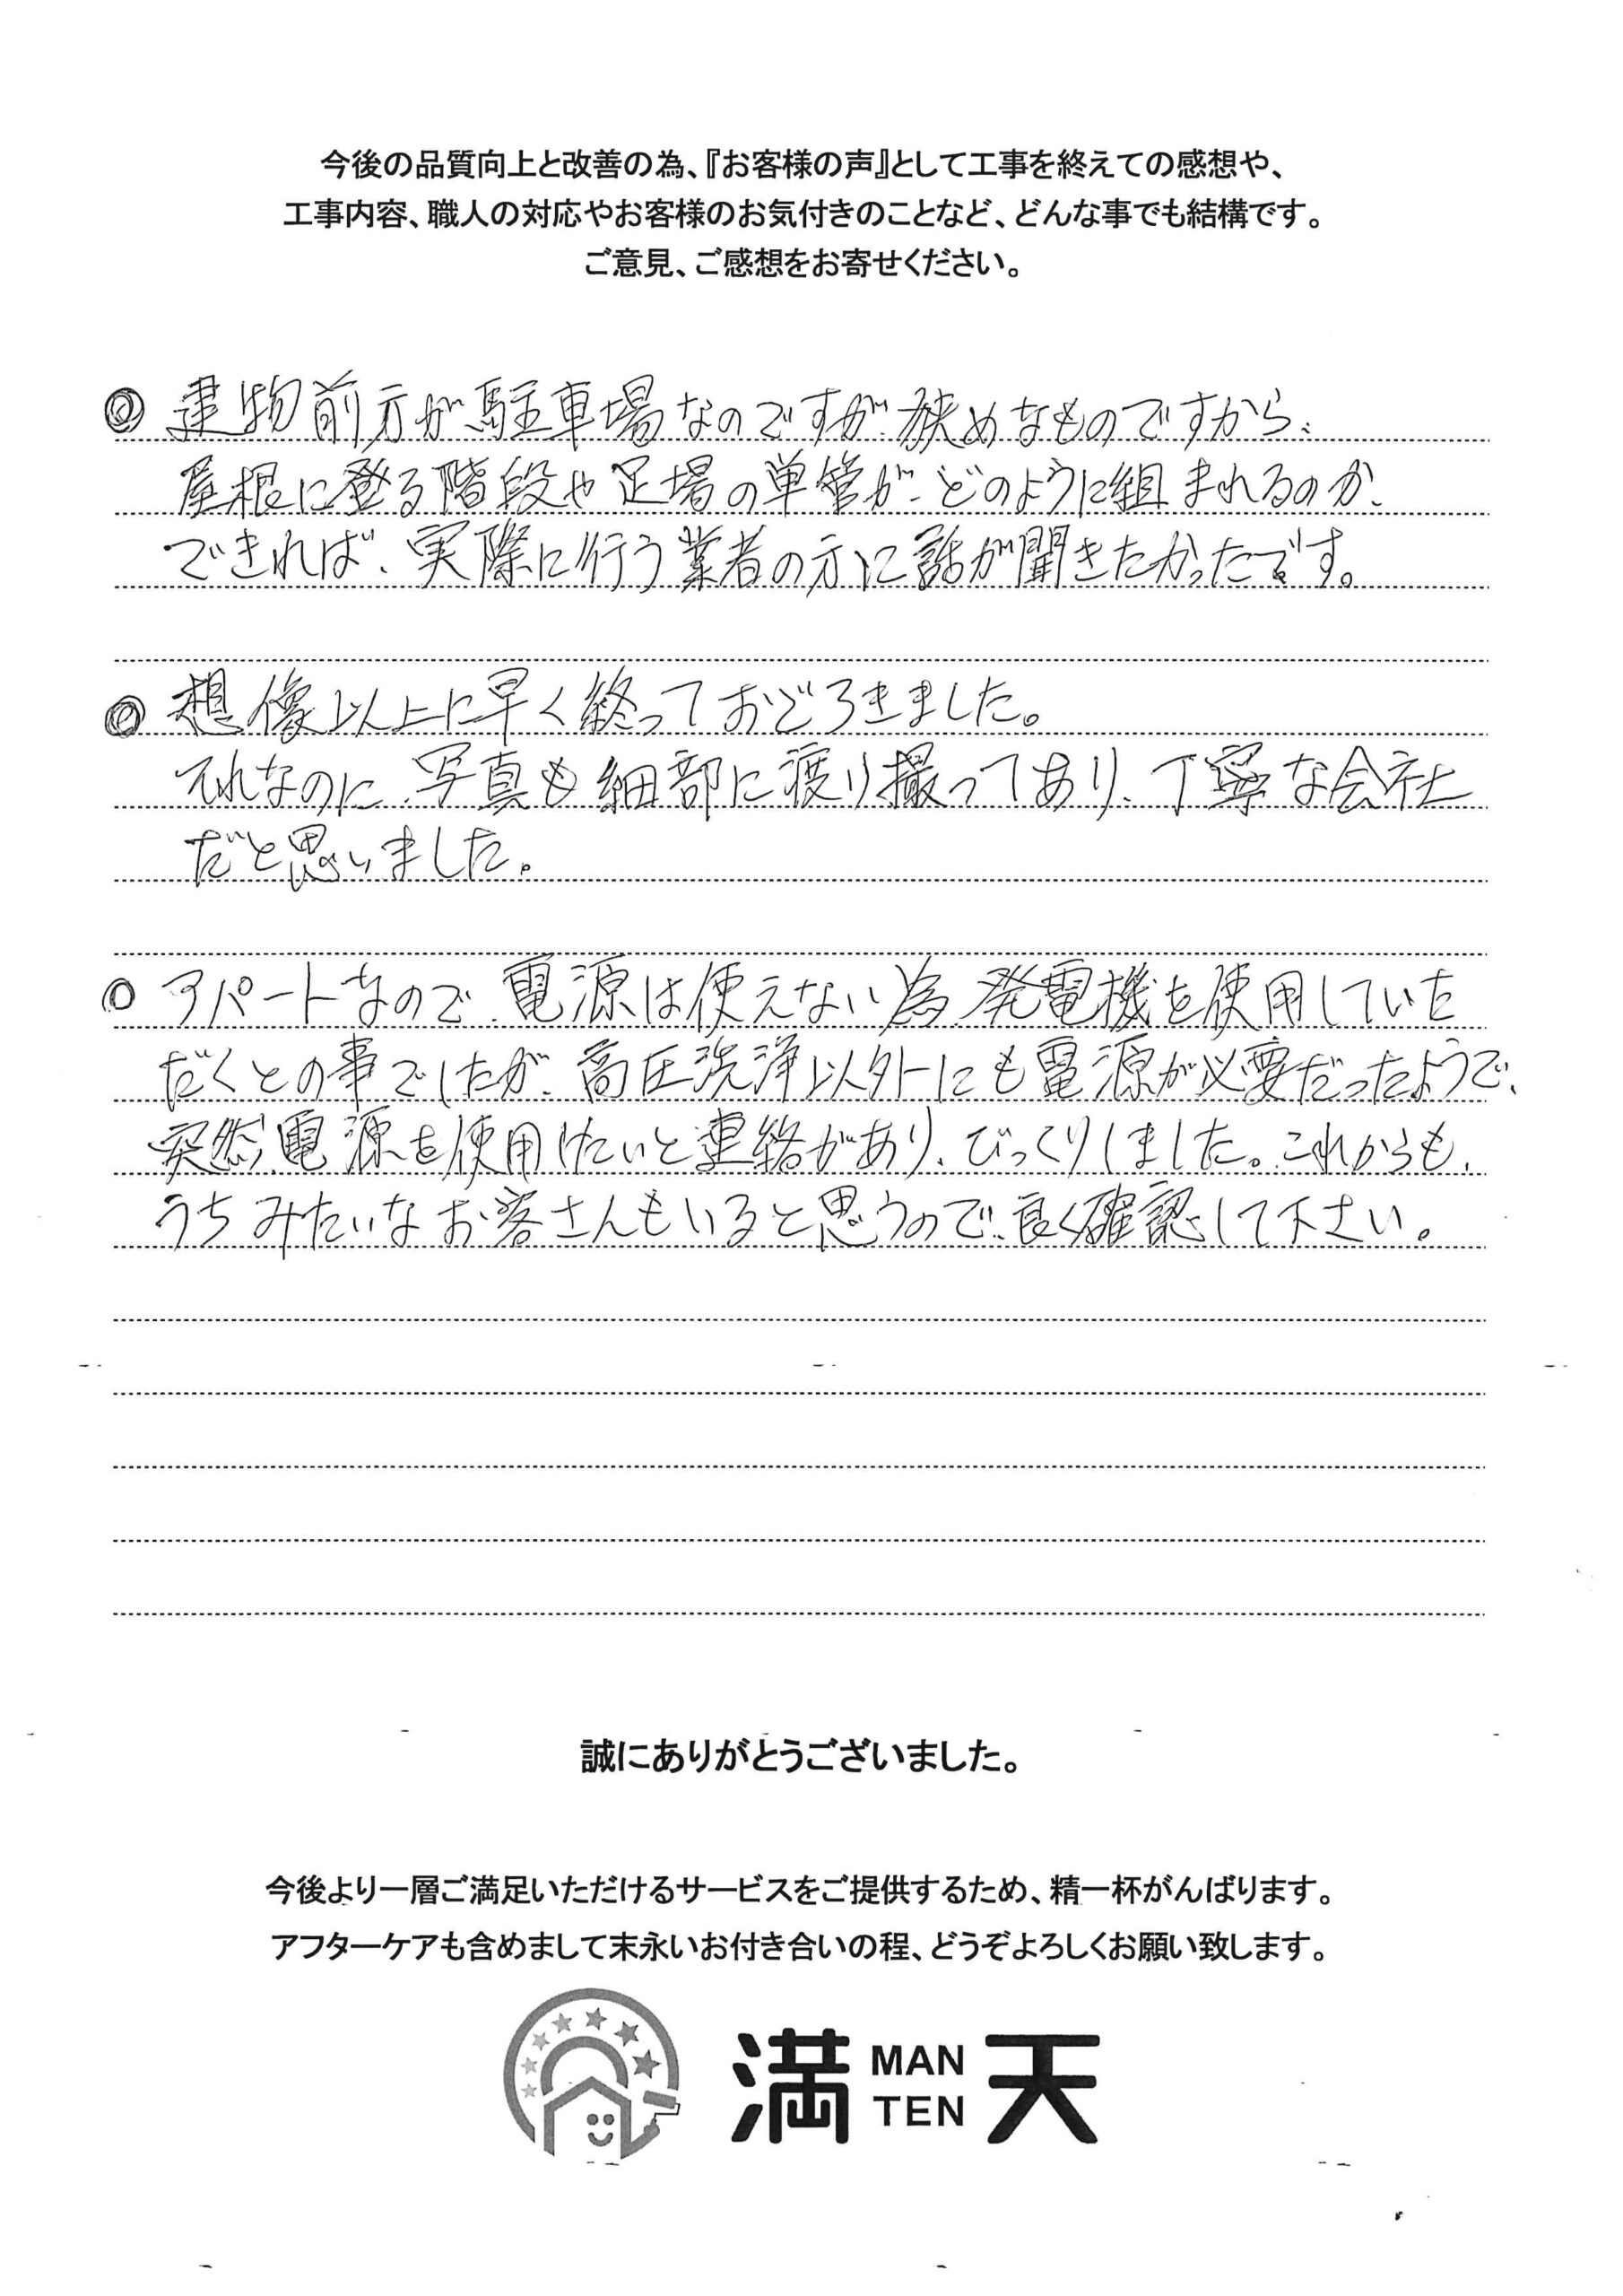 今後の品質向上と改善の為、『お客様の声』として工事を終えての感想や、
工事内容、職人の対応やお客様のお気付きのことなど、どんな事でも結構です。
ご意見、ご感想をお寄せください。
◎ 建物前方が駐車場なのですが、狭めなものですから、
屋根に登る階段や足場の単管が、どのように組まれるのか、
できれば、実際に行う業者の方に話が聞きたかったです。
◎ 想像以上に早く終っておどろきました。
それなのに、写真も細部に渡り撮ってあり、丁寧な会社
だと思いました。
○ アパートなので、電源は使えない為、発電機を使用していた
だくとの事でしたが、高圧洗浄以外にも電源が必要だったようで、
突然、電源を使用したいと連絡があり、びっくりしました。これからも、
うちみたいなお客さんもいると思うので、良く確認して下さい。
誠にありがとうございました。
今後より一層ご満足いただけるサービスをご提供するため、精一杯がんばります。
アフターケアも含めまして末永いお付き合いの程、どうぞよろしくお願い致します。
満 MAN TEN 天